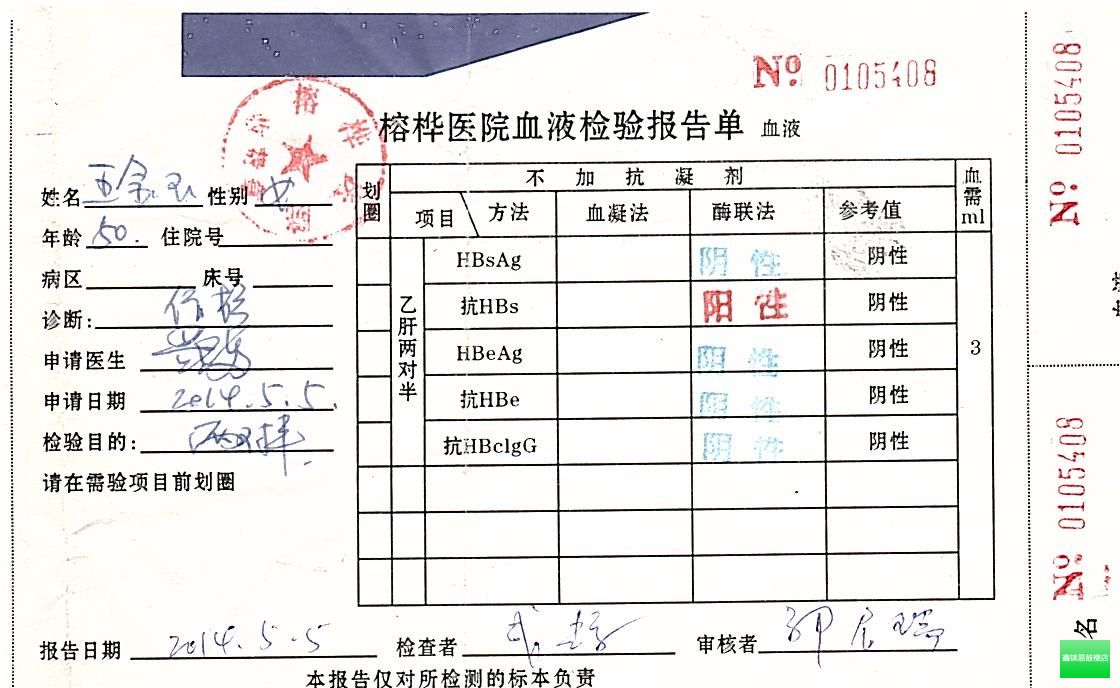 No 0105408
榕桦医院血液检验报告单 血液
姓名 性别 女
年龄 50. 住院号
病区 床号
诊断:
申请医生
申请日期 2014.5.5.
检验目的: 两对半
请在需验项目前划圈
划圈 不加抗凝剂 血需ml
项目 方法 血凝法 酶联法 参考值
乙肝两对半
HBsAg 阴性 阴性
抗HBs 阳性 阴性
HBeAg 阴性 阴性 3
抗HBe 阴性 阴性
抗HBclgG 阴性 阴性
报告日期 2014.5.5 检查者 审核者
本报告仅对所检测的标本负责
No 0105408
No 0105408
名
鑫锦易鼓楼店